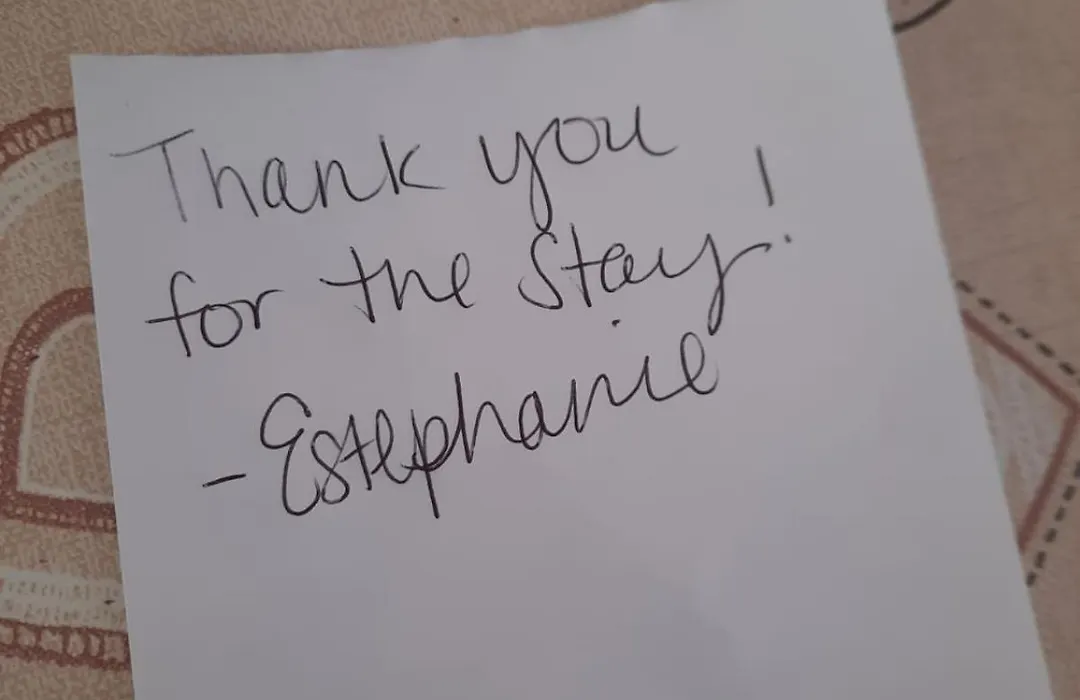 Thank you
for the stay!
- Estephanie